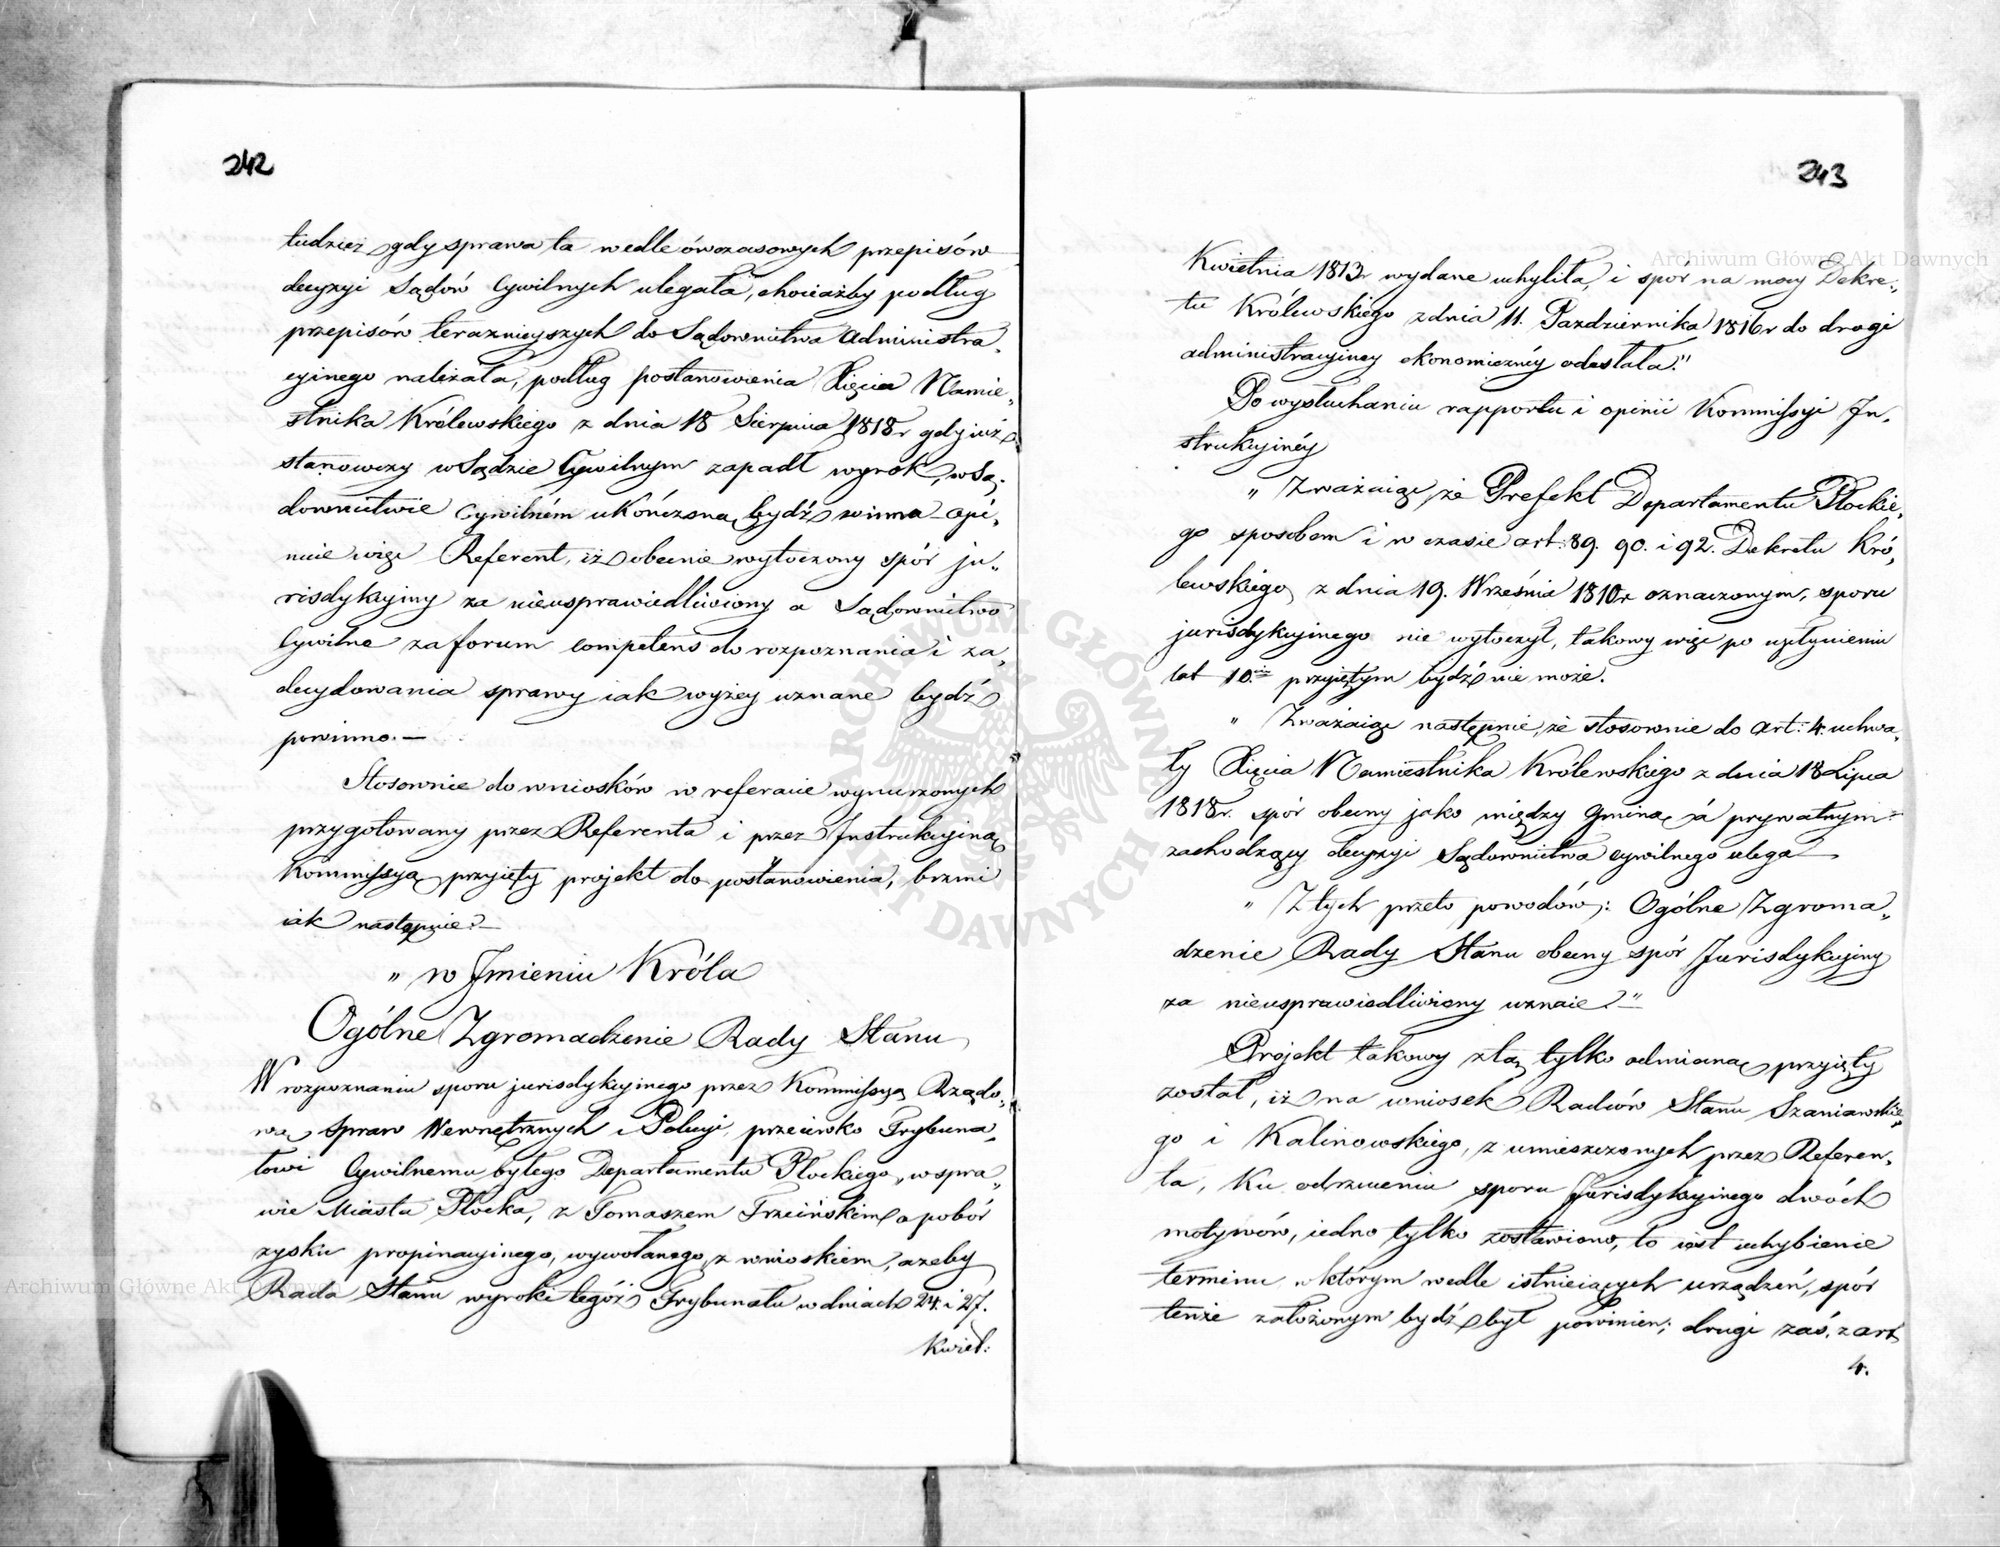 242
tudzież gdy sprawa ta wedle ówczasowych przepisów
decyzyi Sądów Cywilnych ulegała, chociażby podług
przepisów teraznieyszych do Sądownictwa Administra„
cyinego należała, podług postanowienia Xięcia Namie„
stnika Królewskiego z dnia 18 Sierpnia 1818r gdy iuż
stanowczy w Sądzie Cywilnym zapadł wyrok, w Są„
downictwie Cywilném ukończoną bydź winna – opi„
niuie więc Referent, iż obecnie wytoczony spór ju„
risdykcyiny za nieusprawiedliwiony a Sądownictwo
Cywilne za forum competens do rozpoznania i za„
decydowania sprawy iak wyżey uznane bydź
powinno. —
Stosownie do wniosków w referacie wynurzonych
przygotowany przez Referenta i przez Instrukcyiną
Kommissyą przyięty projekt do postanowienia, brzmi
iak następnie: —
„ w Imieniu Króla
Ogólne Zgromadzenie Rady Stanu
W rozpoznaniu sporu jurisdykcyinego przez Kommissyą Rządo„
wą Spraw Wewnętrznych i Policyi, przeciwko Trybuna„
łowi Cywilnemu byłego Departamentu Płockiego, w spra„
wie Miasta Płocka, z Tomaszem Trzcińskim o pobór
zysku propinacyinego, wywołanego, z wnioskiem, ażeby
Rada Stanu wyroki tegóż Trybunału w dniach 24. i 27.
Kwiet:
243
Kwietnia 1813r wydane uchyliła, i spór na mocy Dekre„
tu Królewskiego z dnia 11. Pazdziernika 1816r do drogi
administracyiney ekonomicznéy odesłała."
Po wysłuchaniu rapportu i opinii Kommissyi In„
strukcyinéy
„ Zważaiąc, że Prefekt Departamentu Płockie„
go sposobem i w czasie art: 89. 90. i 92. Dekretu Kró„
lewskiego z dnia 19. Września 1810r oznaczonym, sporu
jurisdykcyinego nie wytoczył, takowy więc po upłynieniu
lat 10.ciu przyiętym bydź nie może.
„ Zważaiąc następnie, że stosownie do art: 4. uchwa„
ły Xięcia Namiestnika Królewskiego z dnia 18 Lipca
1818r. spór obecny jako między Gminą á prywatnym
zachodzący decyzyi Sądownictwa cywilnego ulega —
„ Z tych przeto powodów: Ogólne Zgroma„
dzenie Rady Stanu obecny spór Jurisdykcyiny
za nieusprawiedliwiony uznaie."
Projekt takowy z tą tylko odmianą przyięty
został, iż na wniosek Radców Stanu Szaniawskie„
go i Kalinowskiego, z umieszczonych przez Referen„
ta, ku odrzuceniu sporu Jurisdykcyinego dwóch
motywów, iedno tylko zostawiono, to iest uchybienie
terminu w którym wedle istnieiących urządzeń, spór
tenże założonym bydź był powinien; drugi zaś, z art
4.
Archiwum Główne Akt Dawnych
Archiwum Główne Akt Dawnych
ARCHIWUM GŁÓWNE AKT DAWNYCH